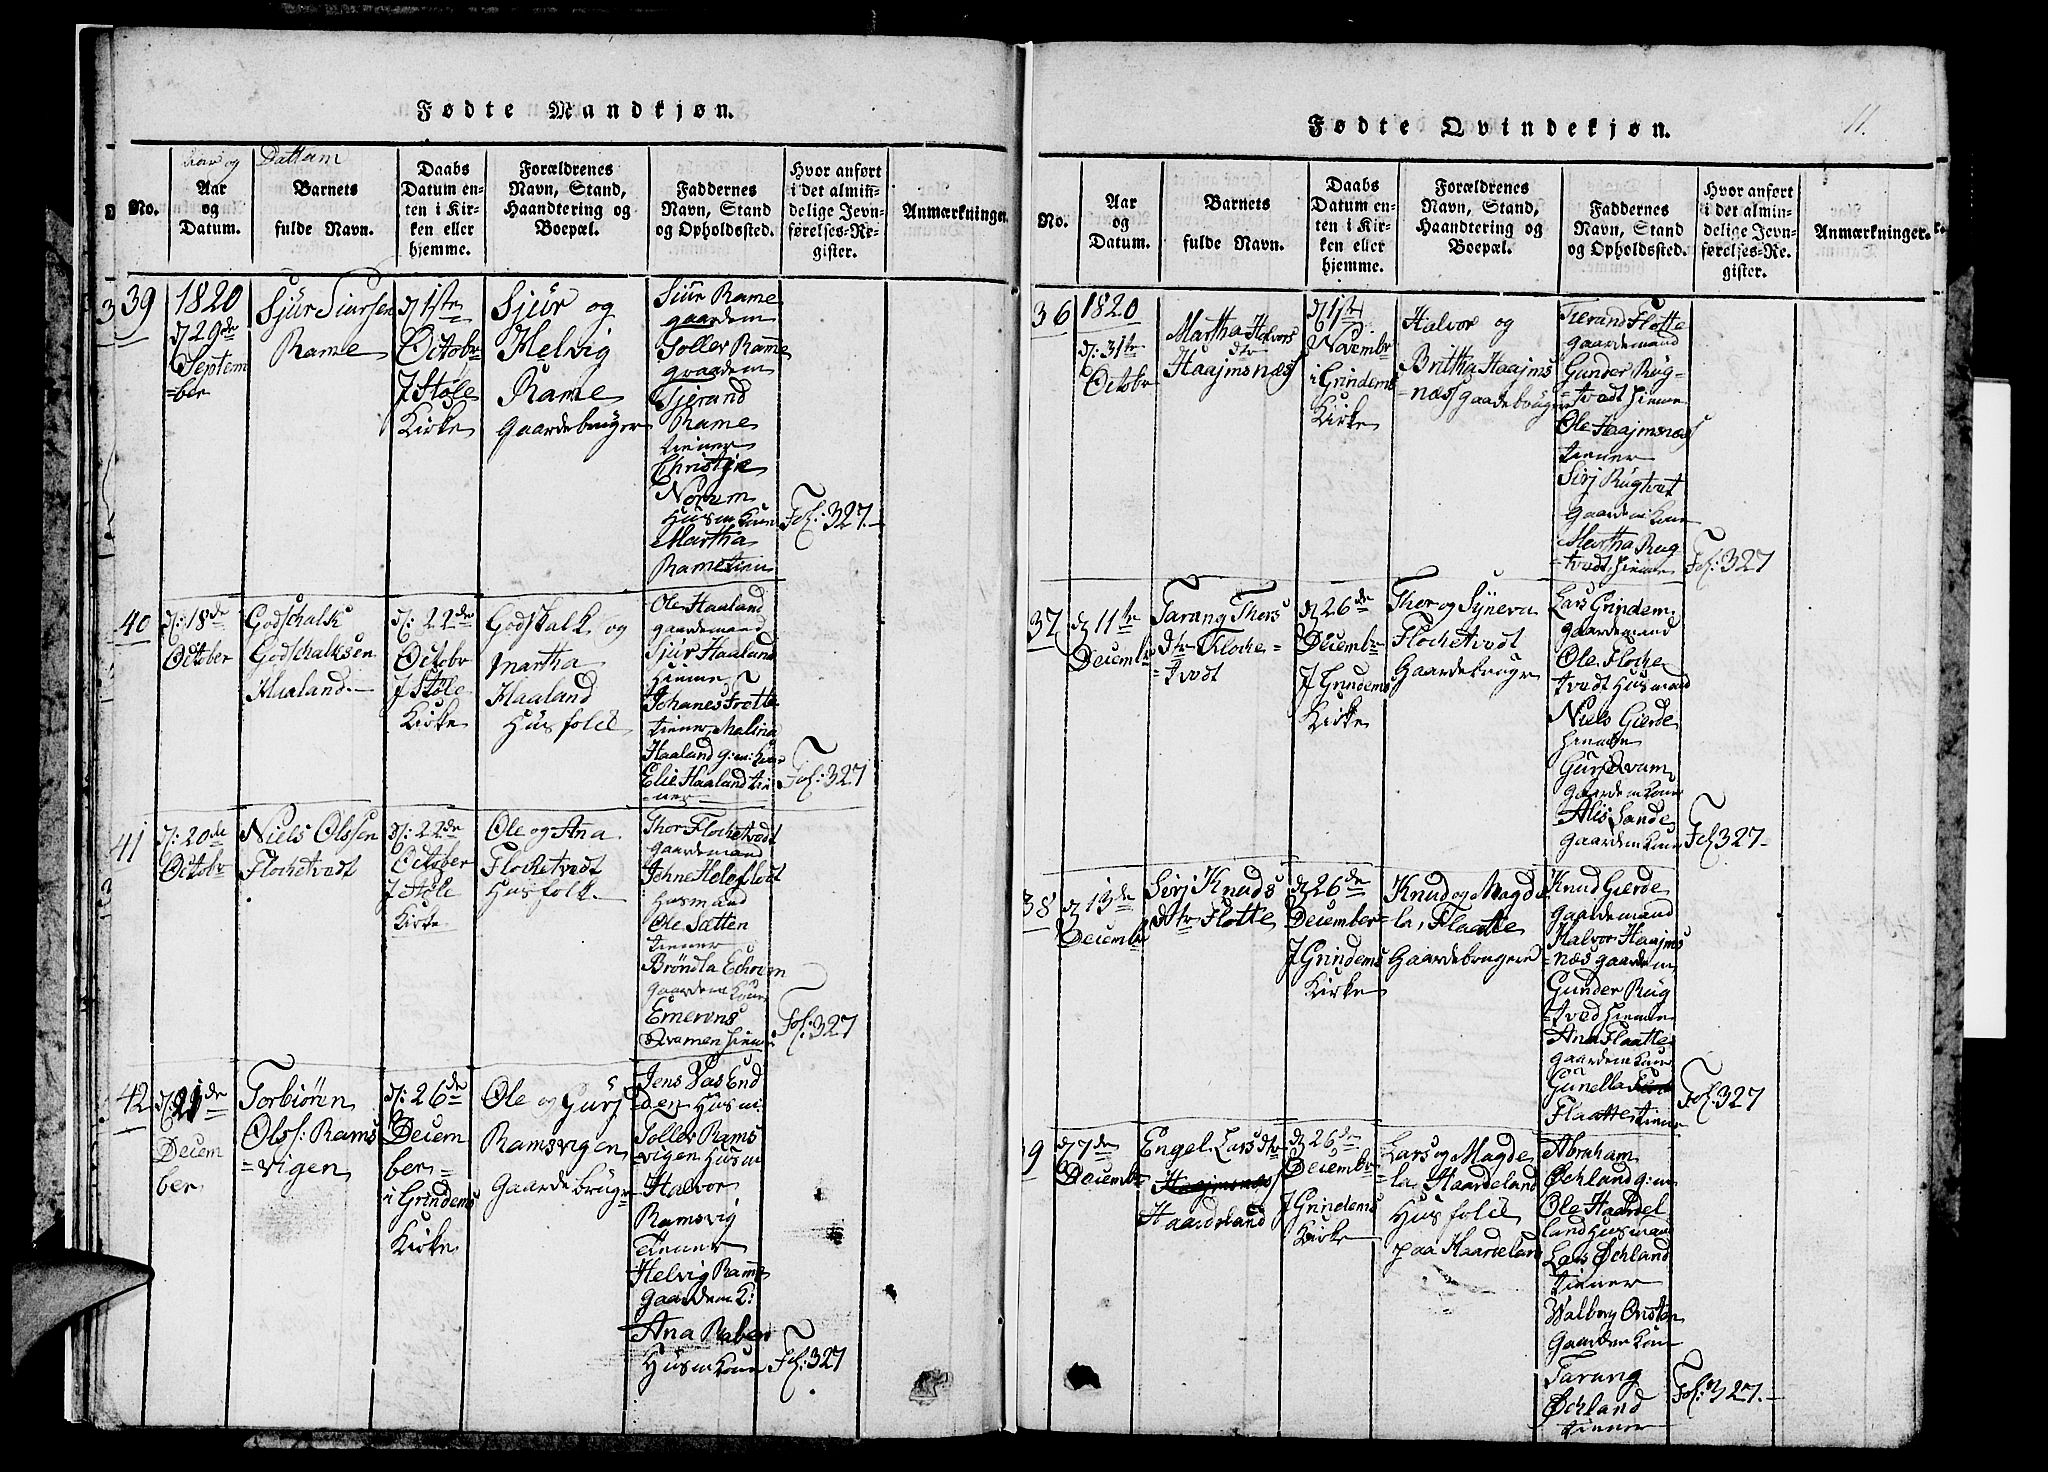 Fødte Mandkjøn.
No.
Aar
og
Datum.
Barnets
fulde Navn.
Daabs
Datum en-
ten i Kir-
ken eller
hjemme.
Forældrenes
Navn, Stand,
Haandtering og
Boepæl.
Faddernes
Navn, Stand
og Opholdssted.
Hvor anført
i det almin-
delige Jevn-
førelses-Re-
gister.
Anmærkninger.
39
1820
d 29de
Septem
=ber
Sjur Siursen
Rame
d 1ste
Octobr
J Støle
Kirke
Sjur og
Helvig
Rame
Gaardebruger
Siur Rame
gaardem
Toller Rame
gaardem
Tjerand
Rame
tiener
Christje
Norem
Husm Kone
Martha
Rame tien
Fol: 327.
40
d: 18de
October
Godschalk
Godschalksen
Haaland.
d: 22de
Octobr
J Støle
Kirke
Godskalk og
Martha
Haaland
Husfolk
Ole Haaland
gaardemand
Sjur Haaland
hiemme
Johanes Tvette
tiener Malina
Haaland g:m: Kone
Elie Haaland tie
=ner
Fol: 327
41
d: 20de
Octobr
Niels Olssen
Flochetvedt
d: 22de
October
J Støle
Kirke
Ole og Ana
Flochetvedt
Husfolk.
Thor Flochetvedt
gaardemand
Husmand
Ole Sætten
tiener
Brøndla Echrem
gaardem Kone
Qvamen hieme
Fol: 327
42
d: 21de
Decem
ber
Torbiøren
Olss: Rams
=vigen
d: 26de
Decem
ber
i Grindems
Kirke
Ole og Gurj
Ramsvigen
Gaardebrugr
Jens Vas End
den Husm
Toller Rams
vigen Husm
Halvor
Ramsvig
tiener
Helvig Rame
gaardem
Ana
Husm Kone
Fol: 327
Fødte Qvindekjøn.
11.
No.
Aar
og
Datum.
Barnets
fulde Navn.
Daabs
Datum en-
ten i Kir-
ken eller
hjemme.
Forældrenes
Navn, Stand,
Haandtering og
Boepæl.
Faddernes
Navn, Stand
og Opholdssted.
Hvor anført
i det almin-
delige Jevn-
førelses-Re-
gister.
Anmærkninger.
36
1820
d: 31te
Octobr
Martha Halvors
dtr
Haajmsnæs
Novembr
i Grindems
Kirke
Halvor og
Britha Haajms
=næs gaardebruger
Tierand Flotte
gaardemand
Gunder Rug-
=tvedt hieme
Ole Haajmsnæs
tiener
Sirj Rugtvet
gaardem Kone
Martha Rug
=tvedt hieme
Fol: 327
37
d 11te
Decembr
Tarang Thors
dtr Floche-
=tvedt
d 26de
Decembr
J Grindems
Kirke
Thor og Syneva
Flochetvedt
Gaardebrugr
Lars Grindem
gaardemand
Ole Floche
tvedt Husmand
Niels Gierde
hieme
Gurj Qvam
gaardem Kone
Alis Sande
gaardem Kone
Fol 327
38
d 13de
Decembr
Sirj Knuds
dtr Flotte
d 26de
December
J Grindems
Kirke
Knud og Magde
la, Flaatte
Gaardebrugere
Knud Gierde
gaardemand
Halvor Haajms
=næs gaardem
Gunder Rug
=tved hieme
Ana Flaatte
gaardem Kone
Gunella
Flaatte tiener
Fol: 327
39
d 7de
Decembr
Engel Lars dtr
Haajmsnæs
Haardeland
d 26de
Decembr
J Grindems
Kirke
Lars og Magde
la, Haardeland
Husfolk
paa Haardeland
Abraham
Øchland g:m
Ole Haardel
land Husmand
Lars Øchland
tiener
Walborg
gaardem Kone
Tarang
Øchland
tiener
Fol: 327.